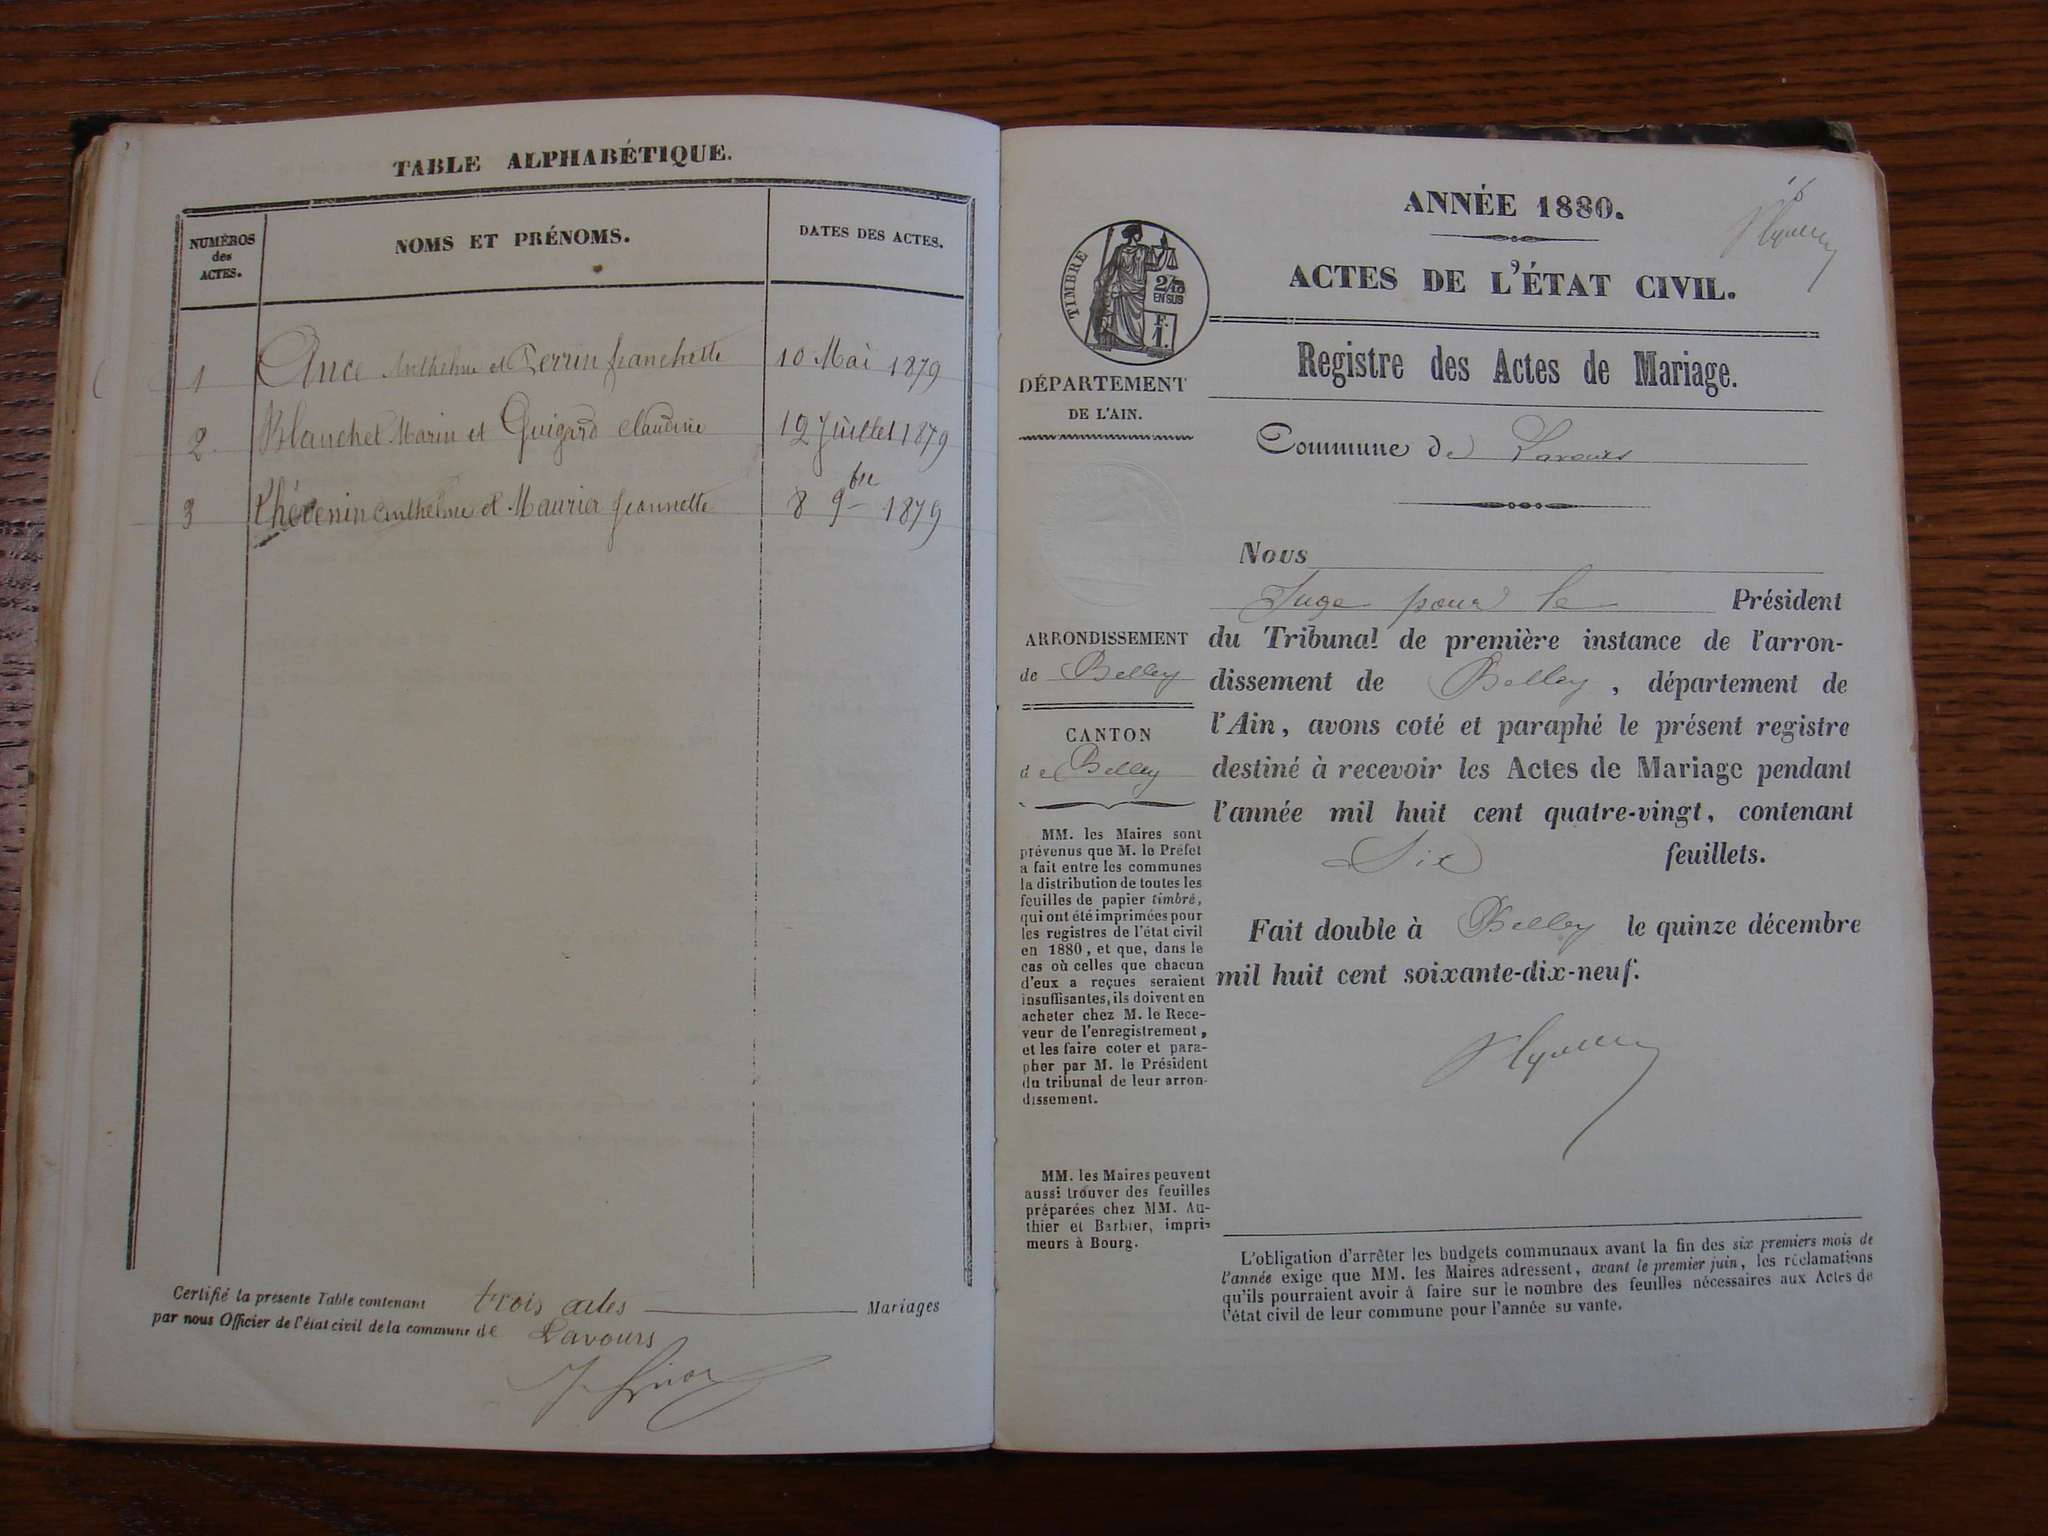 TABLE ALPHABÉTIQUE.
NUMÉROS
des
ACTES.
NOMS ET PRÉNOMS.
DATES DES ACTES.
1 Ance Anthelme et Perrin franchette 10 Mai 1879
2 Blanchet Marin et Guigard Claudine 12 Juillet 1879
3 Thévenin Anthelme et Maurier Jeannette 8 9bre 1879
Certifié la présente Table contenant trois actes Mariages
par nous Officier de l'état civil de la commune de Lavours
ANNÉE 1880.
ACTES DE L'ÉTAT CIVIL.
TIMBRE
2/10
EN SUS
F.
1.
Registre des Actes de Mariage.
DÉPARTEMENT
DE L'AIN.
Commune de Lavours
Nous
Juge pour le Président
du Tribunal de première instance de l'arron-
dissement de Belley, département de
l'Ain, avons coté et paraphé le présent registre
destiné à recevoir les Actes de Mariage pendant
l'année mil huit cent quatre-vingt, contenant
Six feuillets.
Fait double à Belley le quinze décembre
mil huit cent soixante-dix-neuf.
ARRONDISSEMENT
de Belley
CANTON
de Belley
MM. les Maires sont
prévenus que M. le Préfet
a fait entre les communes
la distribution de toutes les
feuilles de papier timbré,
qui ont été imprimées pour
les registres de l'état civil
en 1880, et que, dans le
cas où celles que chacun
d'eux a reçues seraient
insuffisantes, ils doivent en
acheter chez M. le Rece-
veur de l'enregistrement,
et les faire coter et para-
pher par M. le Président
du tribunal de leur arron-
dissement.
MM. les Maires peuvent
aussi trouver des feuilles
préparées chez MM. Au-
thier et Barbier, impri-
meurs à Bourg.
L'obligation d'arrêter les budgets communaux avant la fin des six premiers mois de
l'année exige que MM. les Maires adressent, avant le premier juin, les réclamations
qu'ils pourraient avoir à faire sur le nombre des feuilles nécessaires aux Actes de
l'état civil de leur commune pour l'année su vante.